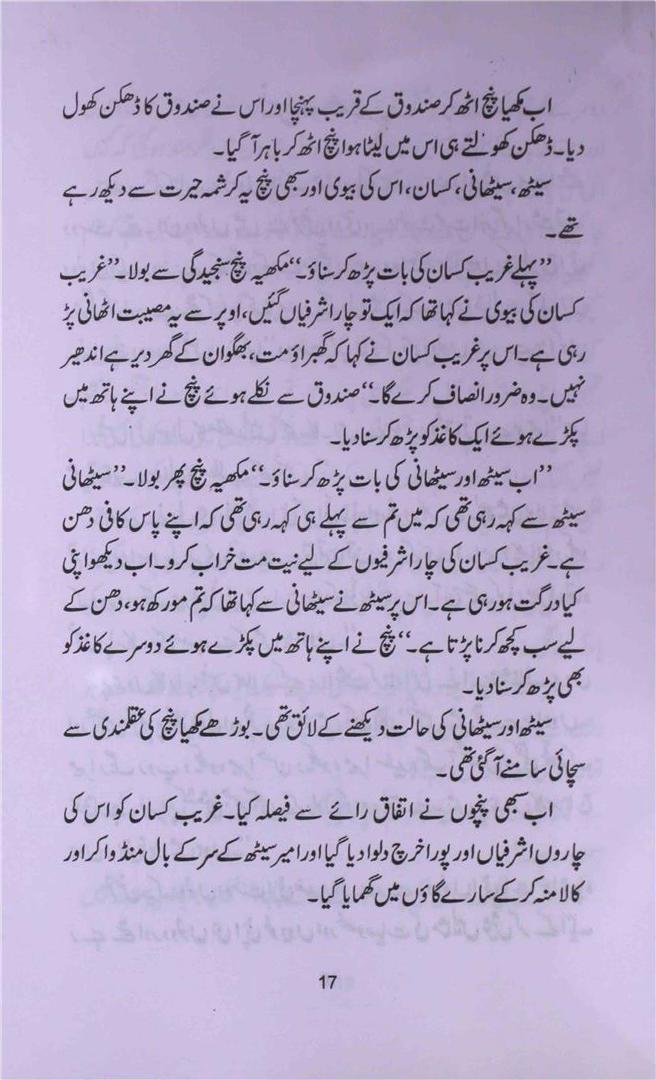 اب مکھیا پنچ اٹھ کر صندوق کے قریب پہنچا اور اس نے صندوق کا ڈھکن کھول
دیا۔ ڈھکن کھولتے ہی اس میں لیٹا ہوا پنچ اٹھ کر باہر آ گیا۔
سیٹھ، سیٹھانی، کسان، اس کی بیوی اور سبھی پنچ یہ کرشمہ حیرت سے دیکھ رہے
تھے۔
”پہلے غریب کسان کی بات پڑھ کر سناؤ۔“ مکھیہ پنچ سنجیدگی سے بولا۔ ”غریب
کسان کی بیوی نے کہا تھا کہ ایک تو چار اشرفیاں گئیں، اوپر سے یہ مصیبت اٹھانی پڑ
رہی ہے۔ اس پر غریب کسان نے کہا کہ گھبراؤ مت، بھگوان کے گھر دیر ہے اندھیر
نہیں۔ وہ ضرور انصاف کرے گا۔“ صندوق سے نکلے ہوئے پنچ نے اپنے ہاتھ میں
پکڑے ہوئے ایک کاغذ کو پڑھ کر سنا دیا۔
”اب سیٹھ اور سیٹھانی کی بات پڑھ کر سناؤ۔“ مکھیہ پنچ پھر بولا۔ ”سیٹھانی
سیٹھ سے کہہ رہی تھی کہ میں تم سے پہلے ہی کہہ رہی تھی کہ اپنے پاس کافی دھن
ہے۔ غریب کسان کی چار اشرفیوں کے لیے نیت مت خراب کرو۔ اب دیکھو اپنی
کیا درگت ہو رہی ہے۔ اس پر سیٹھ نے سیٹھانی سے کہا تھا کہ تم مورکھ ہو، دھن کے
لیے سب کچھ کرنا پڑتا ہے۔“ پنچ نے اپنے ہاتھ میں پکڑے ہوئے دوسرے کاغذ کو
بھی پڑھ کر سنا دیا۔
سیٹھ اور سیٹھانی کی حالت دیکھنے کے لائق تھی۔ بوڑھے مکھیا پنچ کی عقلمندی سے
سچائی سامنے آ گئی تھی۔
اب سبھی پنچوں نے اتفاق رائے سے فیصلہ کیا۔ غریب کسان کو اس کی
چاروں اشرفیاں اور پورا خرچ دلوا دیا گیا اور امیر سیٹھ کے سر کے بال منڈوا کر اور
کالا منہ کر کے سارے گاؤں میں گھمایا گیا۔
17